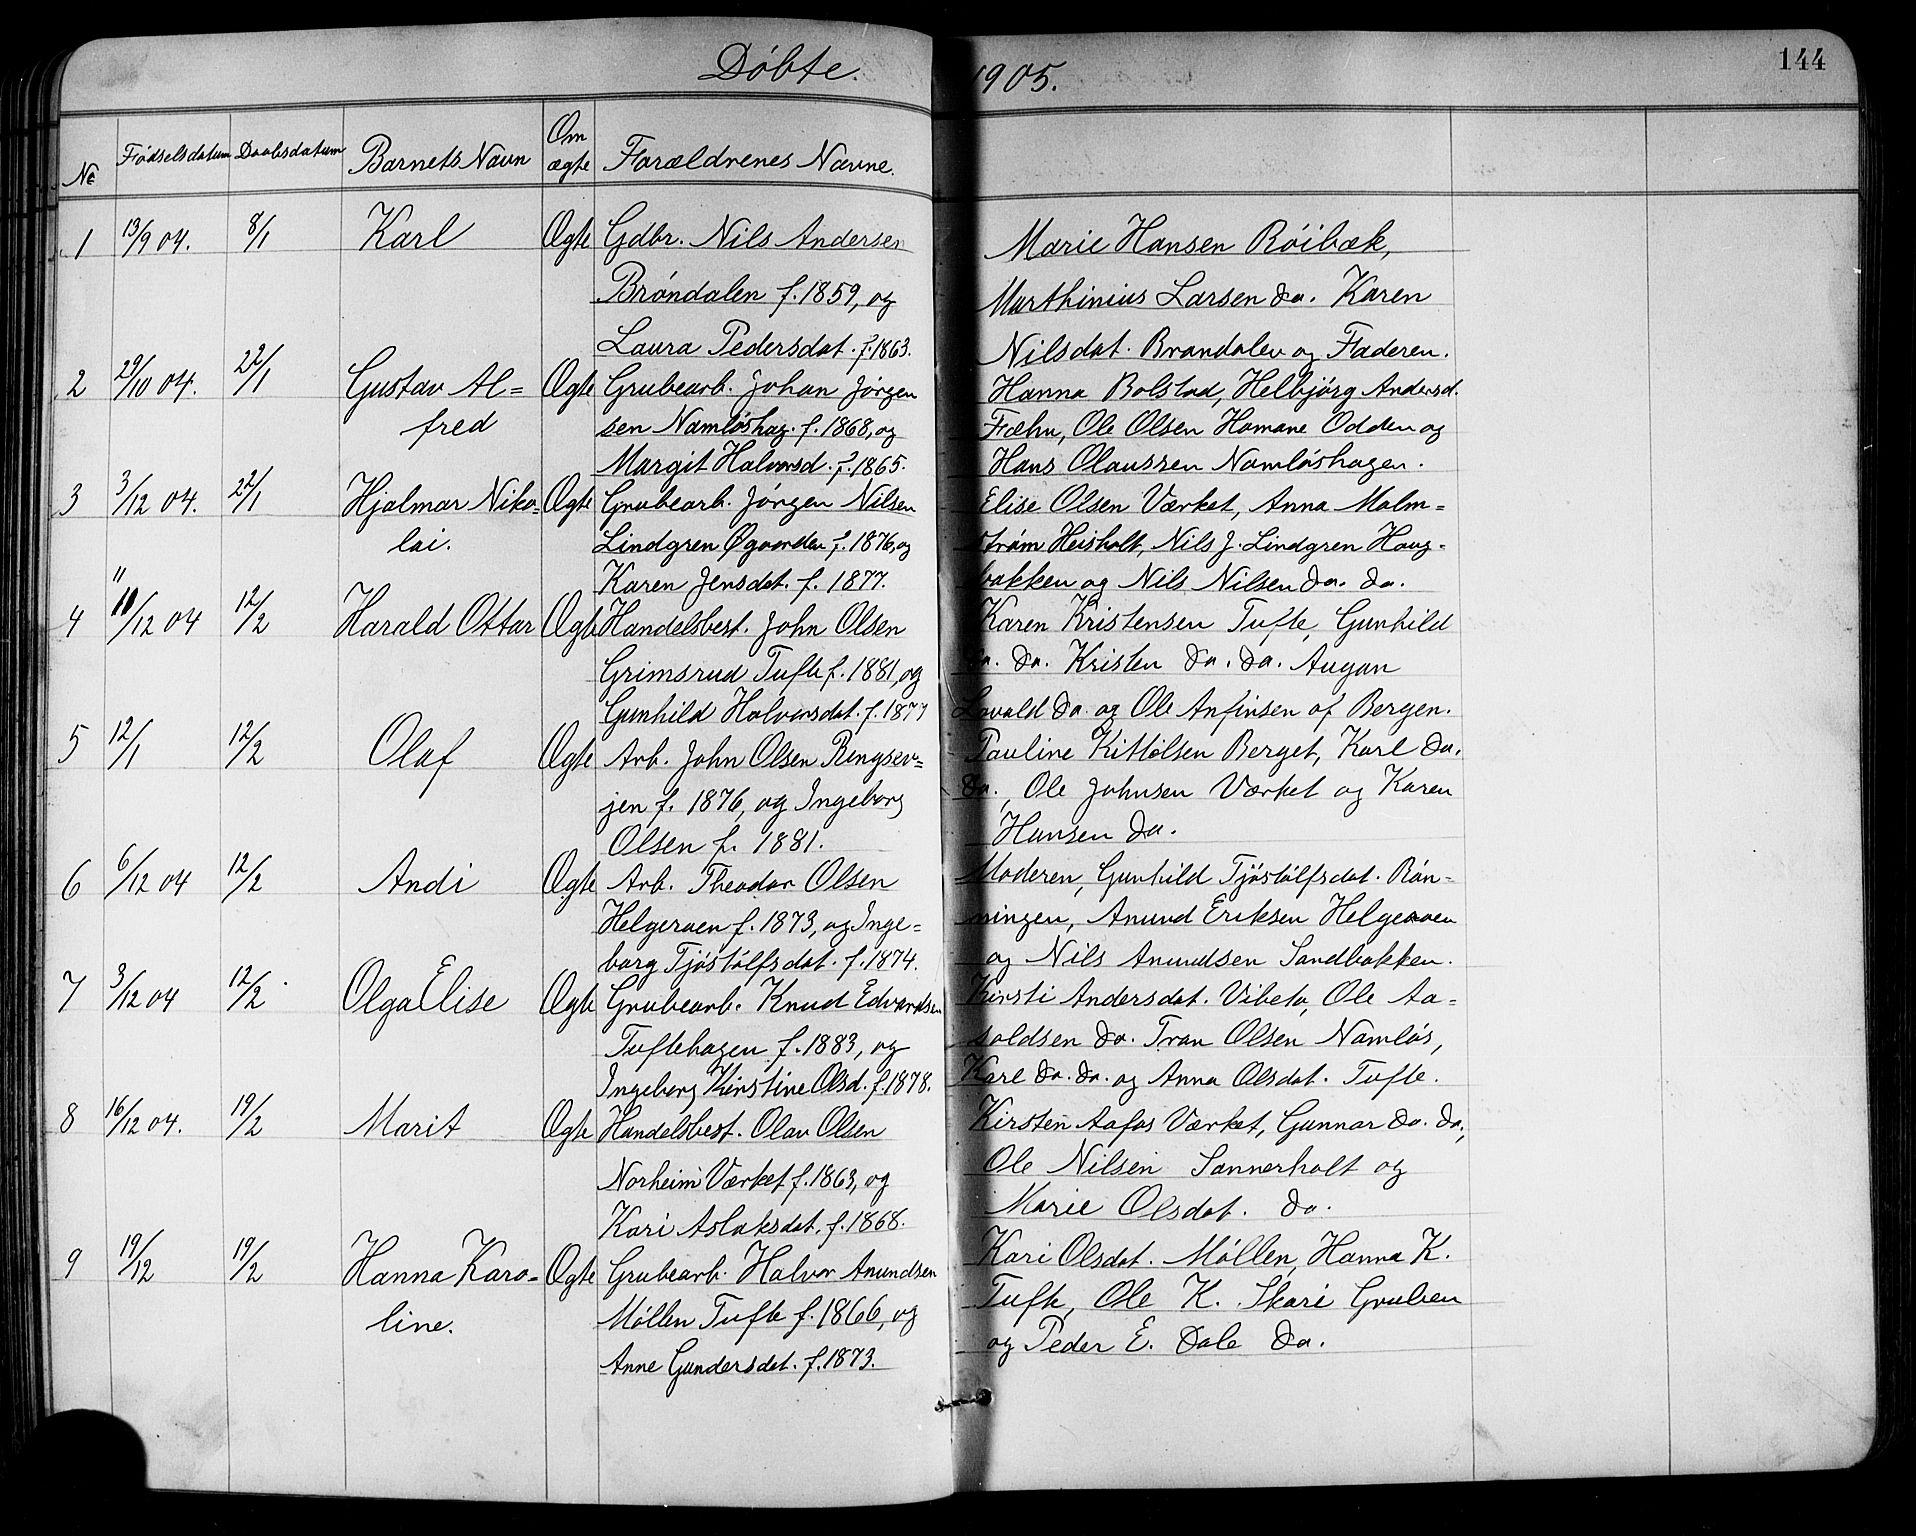 Döbte. 1905.
144
No Födselsdatum Daabsdatum Barnets Navn Om ægte Forældrenes Navne.
1 13/9 04. 8/1 Karl Ægte Gdbr. Nils Andersen Marie Hansen Röibæk,
Bröndalen f. 1859, og Marthinius Larsen do. Karen
Laura Pedersdat. f. 1863. Nilsdat. Brøndalen og Faderen.
2 29/10 04. 22/1 Gustav Al= Ægte Grubearb. Johan Jörgen Hanna Bolstad, Helbjörg Andersd.
fred sen Namlöshag. f. 1868, og Fæhn, Ole Olsen Homane Odden og
Margit Halvorsd. f. 1865. Hans Olaussen Namlöshagen.
3 3/12 04. 22/1 Hjalmar Niko= Ægte Grubearb. Jörgen Nilsen Elise Olsen Værket, Anna Malm=
lai. Lindgren Øgaarden f. 1876, og ström Heisholt, Nils J. Lindgren Haug=
Karen Jensdat. f. 1877. bakken og Nils Nilsen do. do.
4 11/12 04 12/2 Harald Ottar Ægte Handelsbest. John Olsen Karen Kristensen Tufte, Gunhild
Grimsrud Tufte f. 1881, og do. do. Kristen do. do. Augon
Gunhild Halvorsdat. f. 1877 Lavold do. og Ole Anfinsen af Bergen.
5 12/1 12/2 Olaf Ægte Arb. John Olsen Ringsev= Pauline Kittölsen Berget, Karl do.
jen f. 1876, og Ingeborg do., Ole Johnsen Værket og Karen
Olsen f. 1881. Hansen do.
6 6/12 04 12/2 Andi Ægte Arb. Theodor Olsen Moderen, Gunhild Tjöstölfsdat. Rön=
Helgeroen f. 1873, og Inge= ningen, Anund Eriksen Helgeroen
borg Tjöstölfsdat. f. 1874. og Nils Anundsen Sandbakken.
7 3/12 04 12/2. Olga Elise Ægte Grubearb. Knud Edvardsen Kirsti Andersdat. Vibeto, Ole Aa=
Tuftehagen f. 1883, og soldsen do. Tran Olsen Namlös,
Ingeborg Kirstine Olsd. f. 1878. Karl do. do. og Anna Olsdat. Tufte.
8 16/12 04. 19/2 Marit Ægte Handelsbest. Olav Olsen Kirsten Aafos Værket, Gunnar do. do.,
Norheim Værket f. 1863, og Ole Nilsen Sannerholt og
Kari Aslaksdat. f. 1868. Marie Olsdat. do.
9 19/12 19/2 Hanna Karo= Ægte Grubearb. Halvor Anundsen Kari Olsdat. Möllen, Hanna K.
line. Möllen Tufte f. 1866, og Tufte, Ole K. Skari Gruben
Anne Gundersdat. f. 1873. og Peder E. Dale do.